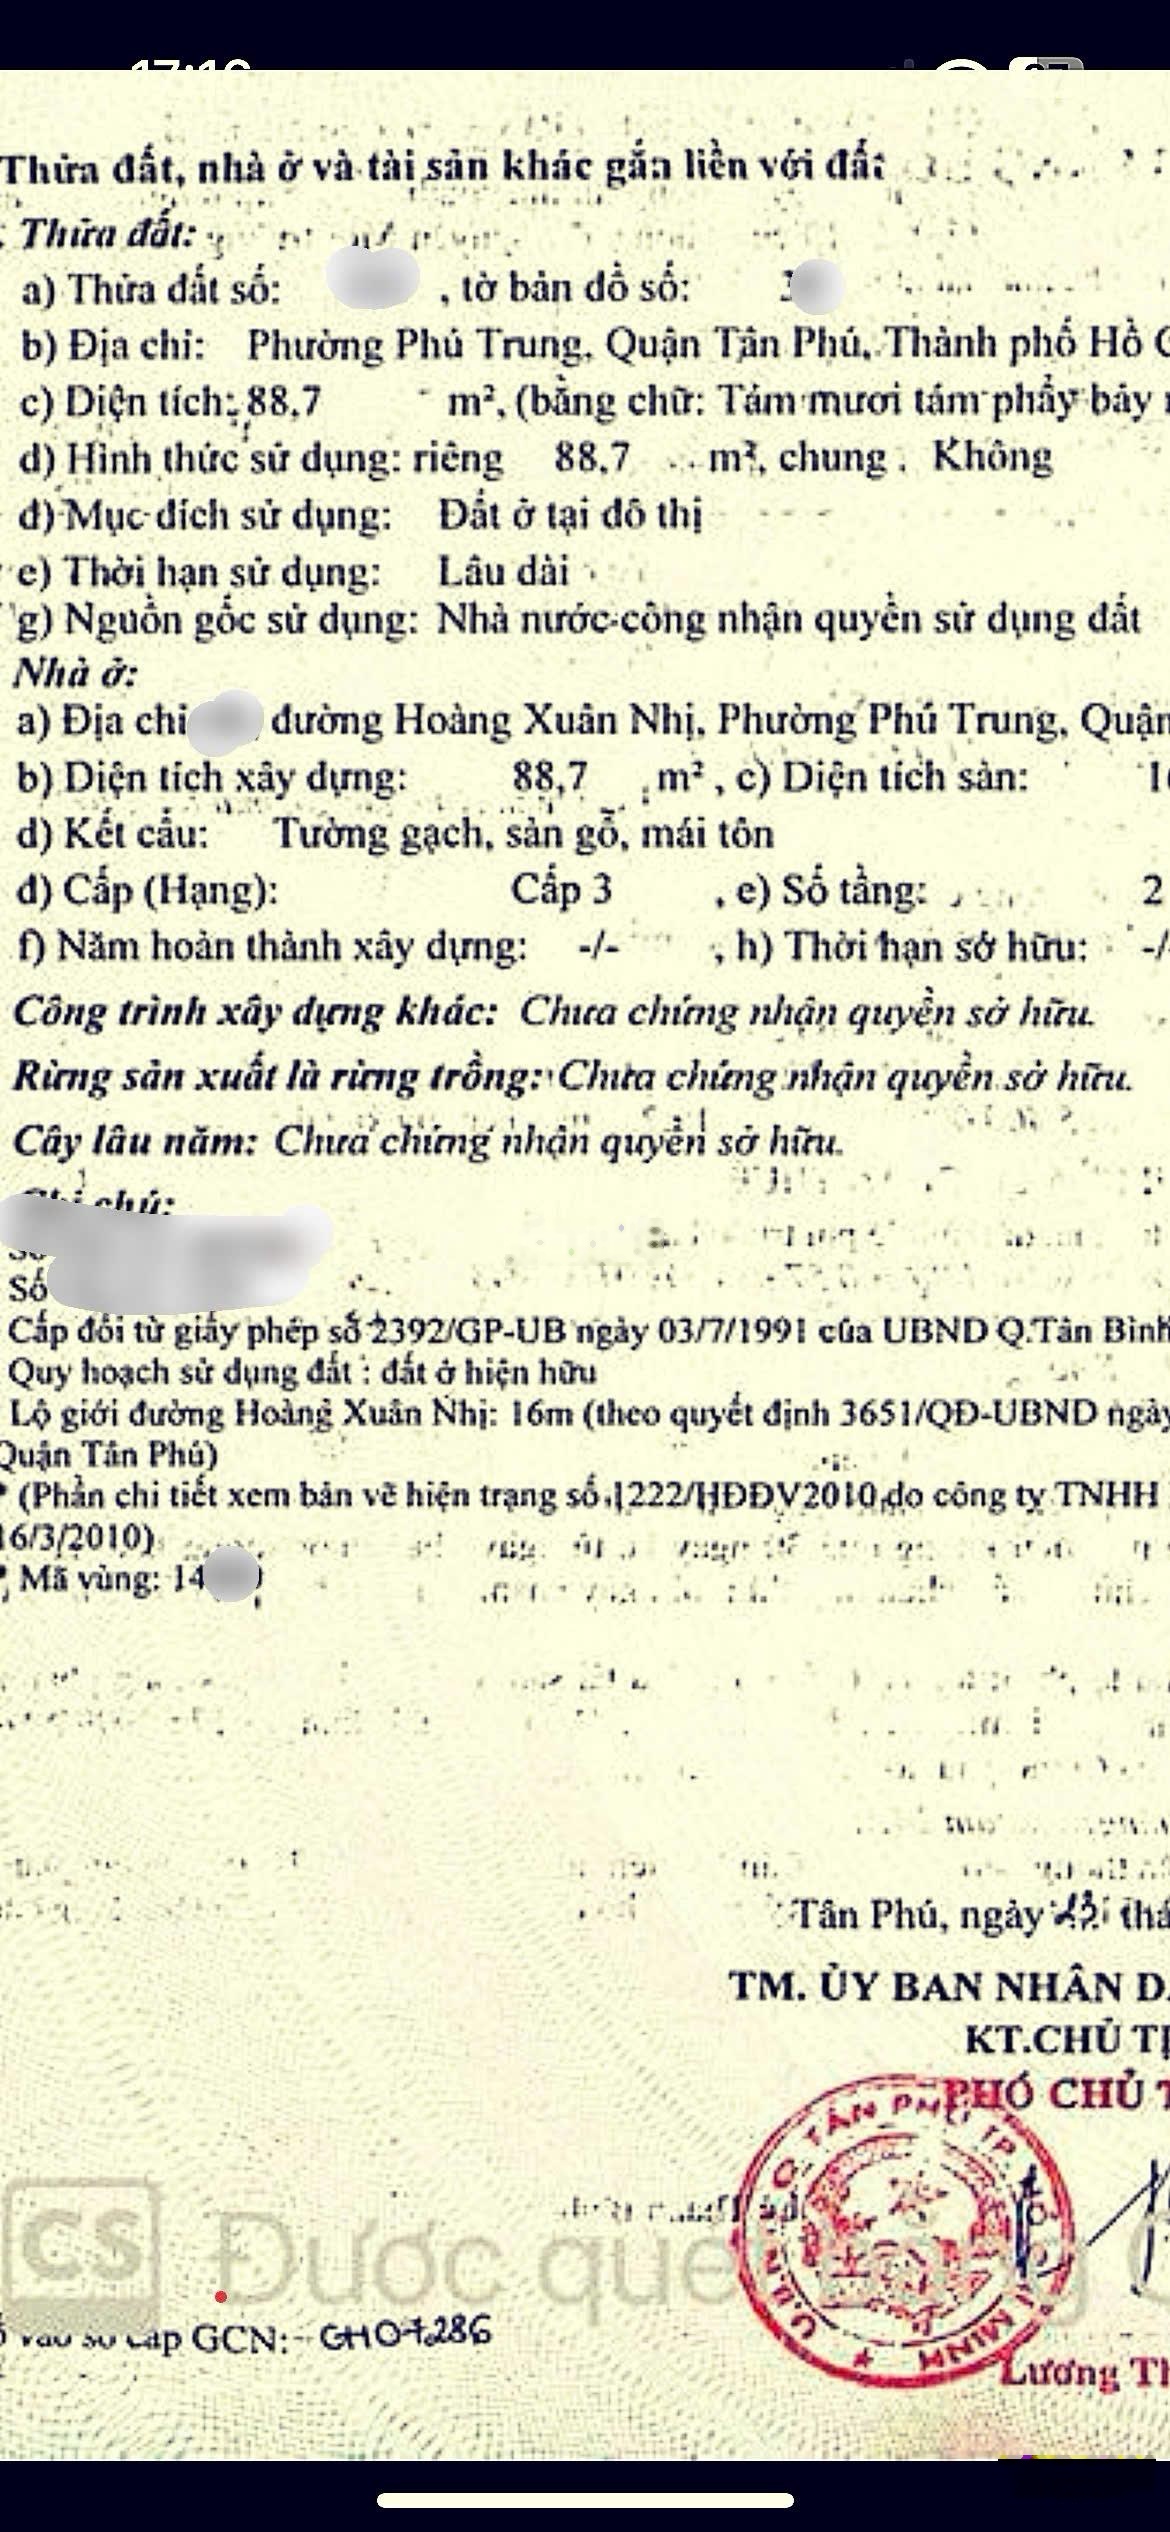 Thửa đất, nhà ở và tài sản khác gắn liền với đất
Thửa đất:
a) Thửa đất số: , tờ bản đồ số:
b) Địa chỉ: Phường Phú Trung, Quận Tân Phú, Thành phố Hồ
c) Diện tích: 88,7 m², (bằng chữ: Tám mươi tám phẩy bảy
d) Hình thức sử dụng: riêng 88,7 m², chung . Không
đ) Mục đích sử dụng: Đất ở tại đô thị
e) Thời hạn sử dụng: Lâu dài
g) Nguồn gốc sử dụng: Nhà nước công nhận quyền sử dụng đất
Nhà ở:
a) Địa chỉ đường Hoàng Xuân Nhị, Phường Phú Trung, Quận
b) Diện tích xây dựng: 88,7 m² , c) Diện tích sàn:
d) Kết cấu: Tường gạch, sàn gỗ, mái tôn
đ) Cấp (Hạng): Cấp 3 , e) Số tầng: 2
f) Năm hoàn thành xây dựng: -/- , h) Thời hạn sở hữu: -/
Công trình xây dựng khác: Chưa chứng nhận quyền sở hữu.
Rừng sản xuất là rừng trồng: Chưa chứng nhận quyền sở hữu.
Cây lâu năm: Chưa chứng nhận quyền sở hữu.
Ghi chú:
Số
Cấp đổi từ giấy phép số 2392/GP-UB ngày 03/7/1991 của UBND Q.Tân Bình
Quy hoạch sử dụng đất : đất ở hiện hữu
Lộ giới đường Hoàng Xuân Nhị: 16m (theo quyết định 3651/QĐ-UBND ngày
Quận Tân Phú)
* (Phần chi tiết xem bản vẽ hiện trạng số 1222/HĐĐV2010 do công ty TNHH
16/3/2010)
* Mã vùng: 14
Tân Phú, ngày
TM. ỦY BAN NHÂN
KT.CHỦ
PHÓ CHỦ
U.B.N.D Q. TÂN PHÚ TP. HỒ CHÍ MINH
CS Được
vào sổ cấp GCN: GH07286
Lương